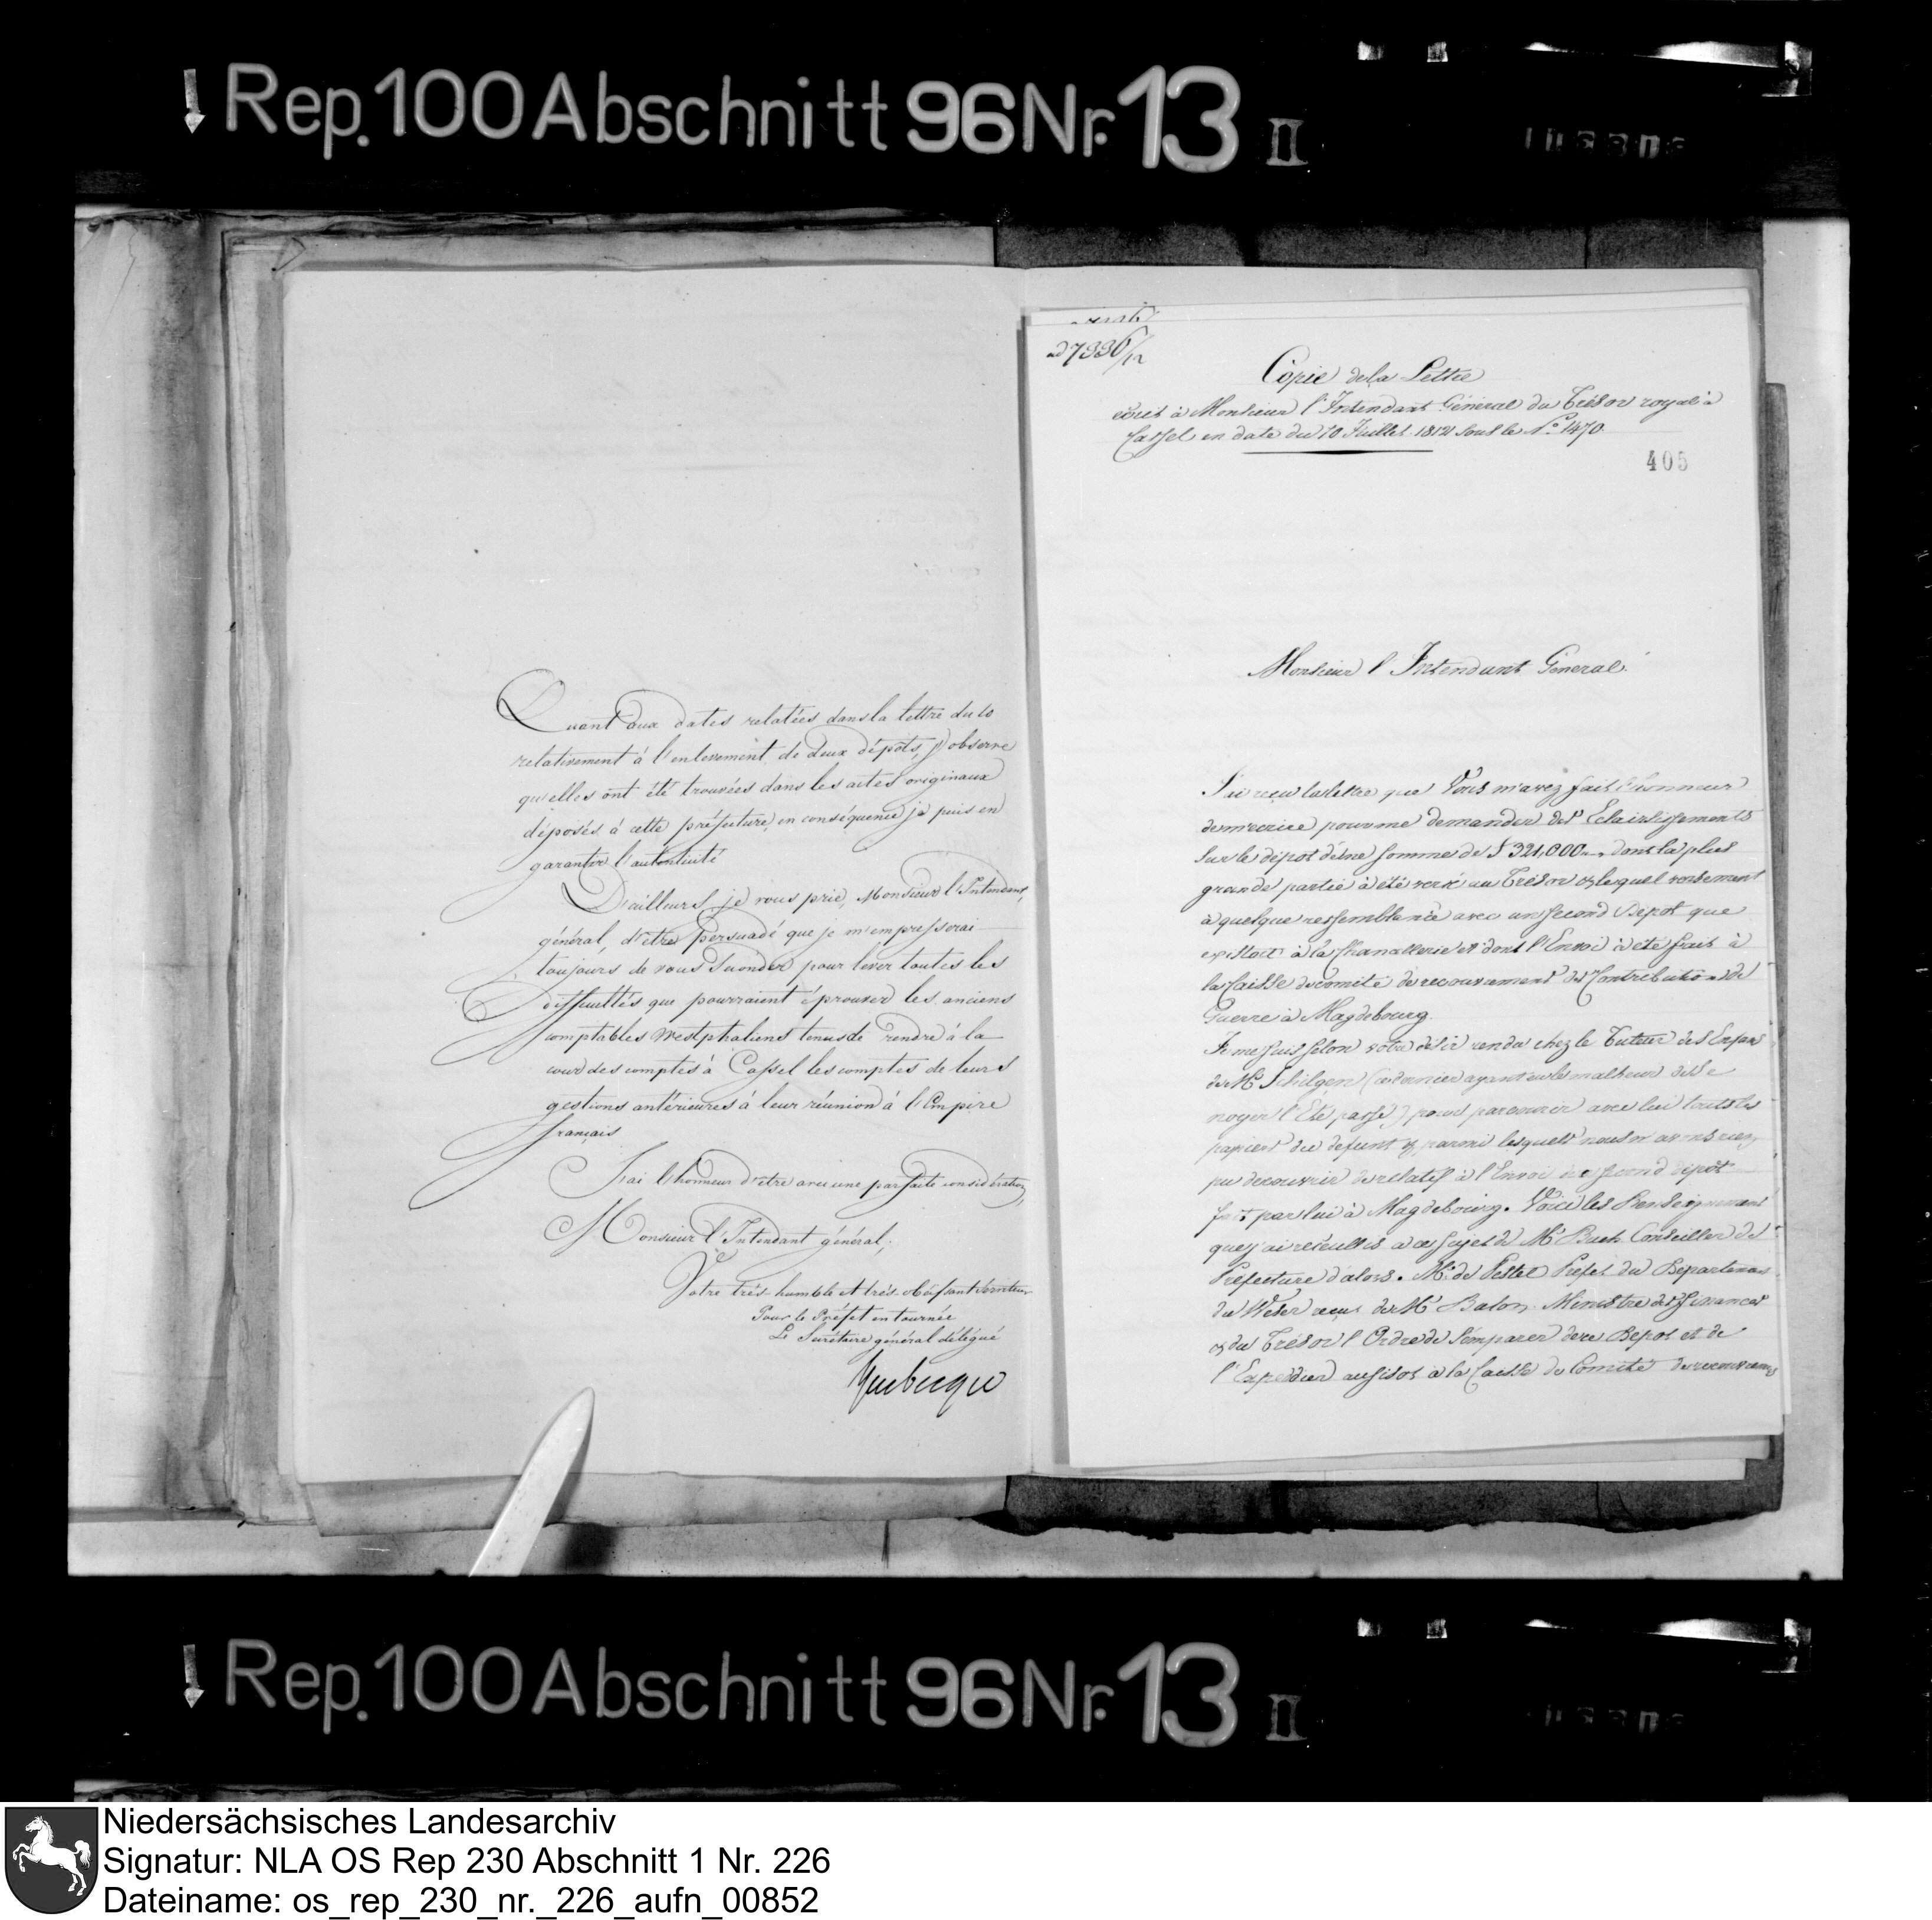 Rep. 100 Abschnitt 96 Nr. 13 II
Quant aux dates relatées dans la lettre du 10
relativement à l'enlevement de deux dépôts, j'observe
qu'elles ont été trouvées dans les actes originaux
déposés à cette préfecture, en conséquence je puis en
garantir l'autenticité
D'ailleurs je vous prie, Monsieur l'Intendant
général, d'être persuadé que je m'empresserai
toujours de vous seconder pour lever toutes les
difficultés que pourraient éprouver les anciens
comptables Westphaliens tenus de rendre à la
cour des comptes à Cassel les comptes de leurs
gestions antérieures à leur réunion à l'Empire
français
J'ai l'honneur d'être avec une parfaite considération,
Monsieur l'Intendant général,
Votre très-humble et très-obéissant serviteur
Pour le Préfet en tournée
Le Secrétaire général délégué
ad 7936/12
Copie de la Lettre
écrit à Monsieur l'Intendant Général du Trésor royal à
Cassel en date du 10 Juillet 1812 sous le N.º 1470
405
Monsieur l'Intendant Général
J'ai reçu la lettre que Vous m'avez fait l'honneur
de m'ecrire pour me demander des Eclaircissements
sur le dépot d'une somme de f 321,000 dont la plus
grande partie à été versé au Trésor & lequel versement
à quelque ressemblance avec un second Dépot que
existoit à la et dont l'Envoi à été fait à
la Caisse du comité de recouvrement des Contributions de
Guerre à Magdebourg.
Je me suis selon votre désir rendu chez le Tuteur des Enfans
de Mr Schilgen (ce dernier ayant eu le malheur de se
noyer l'Eté passé) pour parcourir avec lui touts les
papiers du defunt & parmi lesquels nous n'avons rien
pu decouvrir de relatif à l'Envoi de ce second dépôt
fait par lui à Magdebourg. Voici les Renseignemens
que j'ai recueillis à ce sujet de Mr Buch Conseiller de
Préfecture d'alors. Mr de Pestel Préfet du Departement
du Weser reçut de Mr Ministre des finances
& du Trésor l'Ordre de s'emparer de ce Dépot et de
l'Expédier aussitot à la Caisse du Comité de recouvremens
Rep. 100 Abschnitt 96 Nr. 13 II
Niedersächsisches Landesarchiv
Signatur: NLA OS Rep 230 Abschnitt 1 Nr. 226
Dateiname: os_rep_230_nr._226_aufn_00852